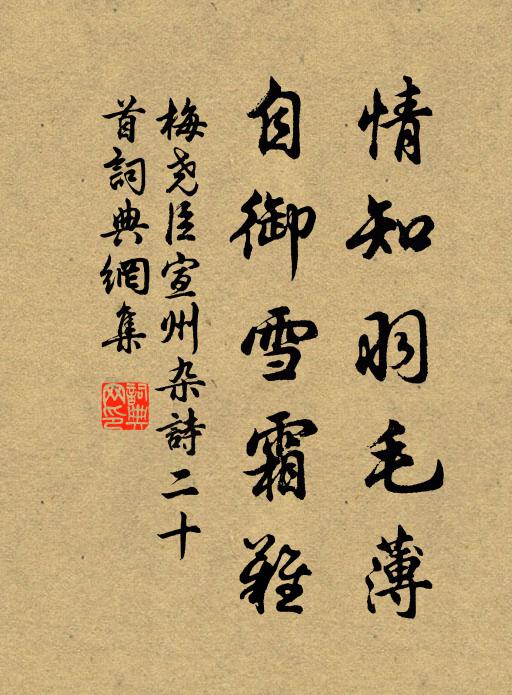 情知羽毛薄
自御雪霜難
梅尧臣宣州杂詩二十
首詞典網集
詞典
网印